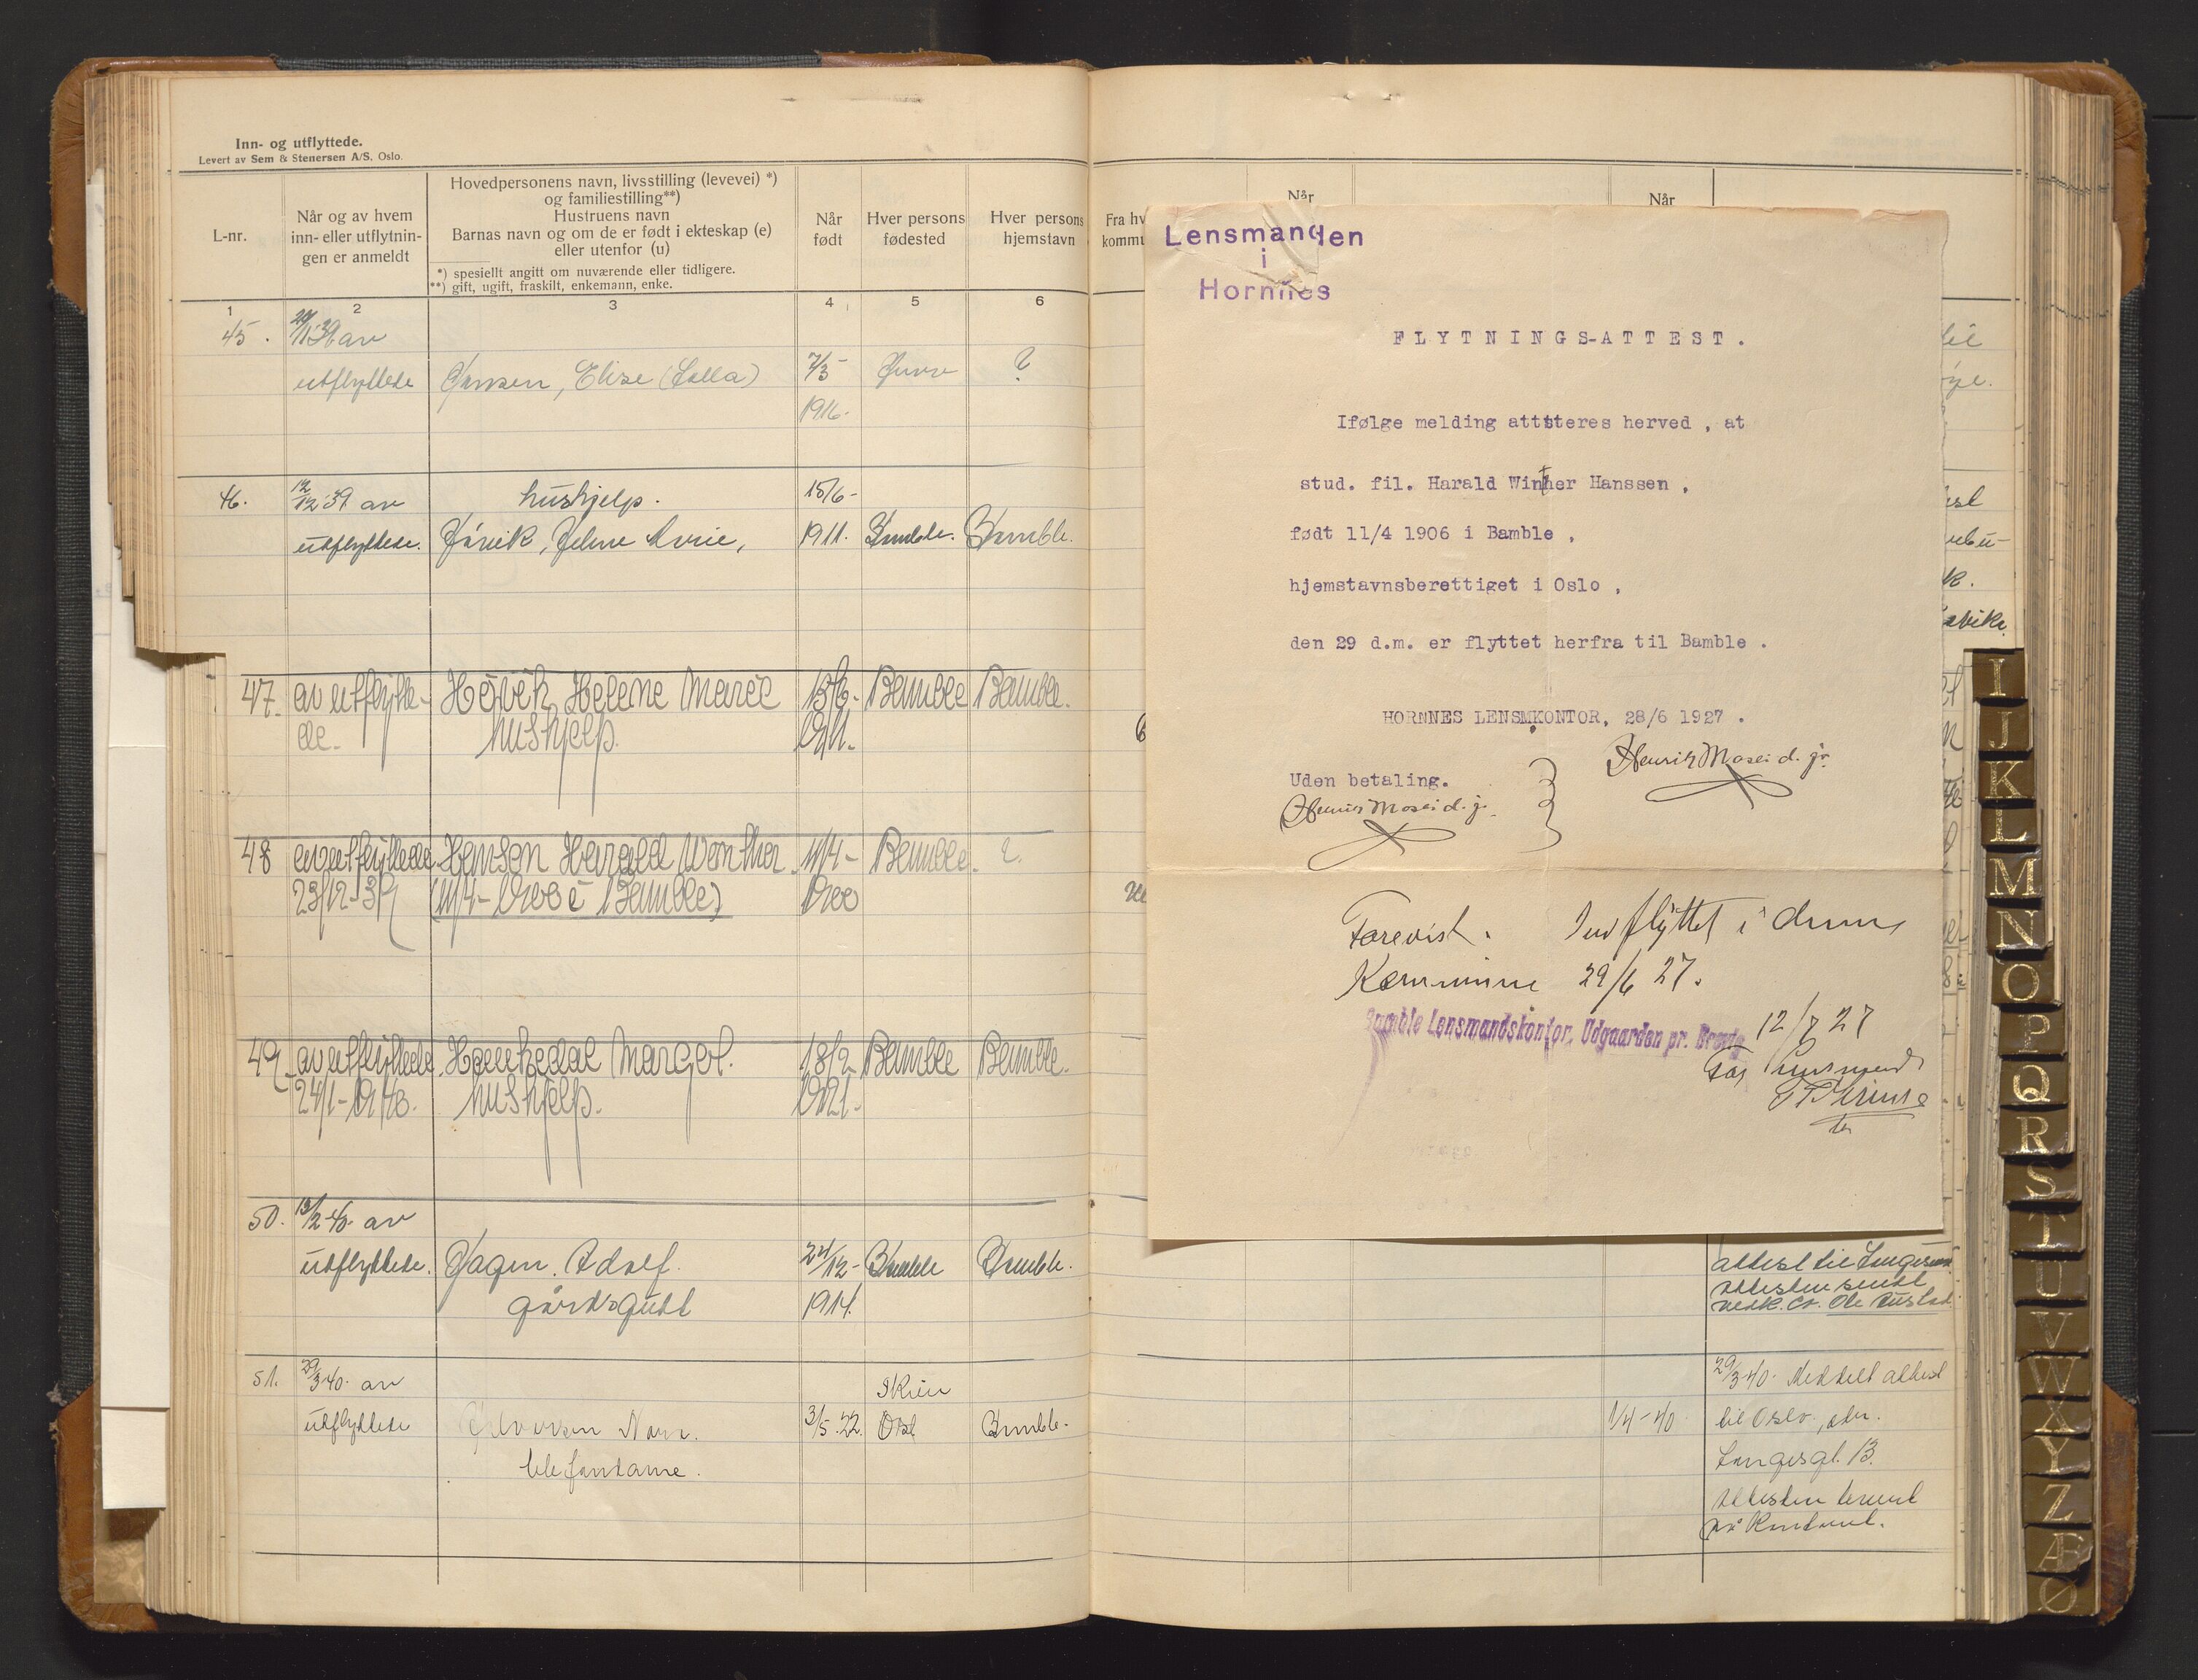 Inn- og utflyttede.
Levert av Sem & Stenersen A/S. Oslo.
L-nr.
Når og av hvem
inn- eller utflytnin-
gen er anmeldt
Hovedpersonens navn, livsstilling (levevei) *)
og familiestilling**)
Hustruens navn
Barnas navn og om de er født i ekteskap (e)
eller utenfor (u)
*) spesiellt angitt om nuværende eller tidligere.
**) gift, ugift, fraskilt, enkemann, enke.
Når
født
Hver persons
fødested
Hver persons
hjemstavn
1 2 3 4 5 6
45. 39 av
utflyttede Hansen, Elise 7/5 ?
1916.
46. 12/12 39 av hushjelp. 15/6-
utflyttede. 1911. Bamble. Bamble.
47. av utflytte- Høvik Helene Marie 15/6- Bamble Bamble.
de. hushjelp. 1911.
48 av utflyttede. Hansen Harald Winther. 11/4- Bamble. ?.
23/12-39 (11/4- i Bamble)
49. av utflyttede. Margot. 18/2- Bamble Bamble.
24/1-1940. hushjelp. 1921.
50. 13/2 40. av
utflyttede. Hagen. Adolf. 24/12- Bamble Bamble.
gårdsgutt 1914.
51. 29/3 40. av Skien
utflyttede Halvorsen 3/5.22. Bamble.
telefondame.
Fra hv
kommu
Når
Når
Lensmanden
i
Hornnes
FLYTNINGS-ATTEST.
Ifølge melding atttteres herved , at
stud. fil. Harald Winther Hanssen ,
født 11/4 1906 i Bamble ,
hjemstavnsberettiget i Oslo ,
den 29 d.m. er flyttet herfra til Bamble .
HORNNES LENSMKONTOR, 28/6 1927 .
Henrik Moseid. jr.
Uden betaling.
Henrik Moseid. jr.
Forevist. Indflyttet i denne
Kommune 29/6 27.
Bamble Lensmandskontor, Udgaarden pr. Brevig 12/7 27
For Lensmand
attest til
attesten sendt
29/3 40. Meddelt attest
1/4-40 til Oslo, adr.
Langesgt. 13.
Attesten hentet
på Kontoret.
I
J
K
L
M
N
O
P
Q
R
S
T
U
V
W
X
Y
Z
Æ
Ø